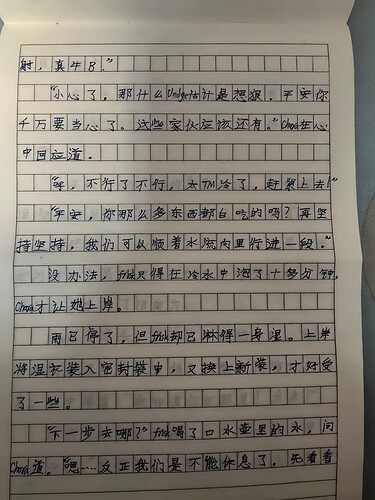 射，真牛B。”
“小心了，那什么Undge估计是想狠，平安你
千万要当心了。这些家伙应该还有。”China在心
中回应道。
“呼，不行了不行，太TM冷了，赶紧上去！”
“平安，你那么多东西都白吃的吗？再坚
持坚持，我们可以顺着水流向里行进一段。”
没办法，只得在冷水中泡了十多分钟，
China才让她上岸。
雨已停了，但却已淋得一身湿。上岸
将湿衣装入密封袋中，又换上新装，才好受
了一些。
“下一步去哪？”喝了口水壶里的水，问
China道。“嗯……反正我们是不能休息了，先看看